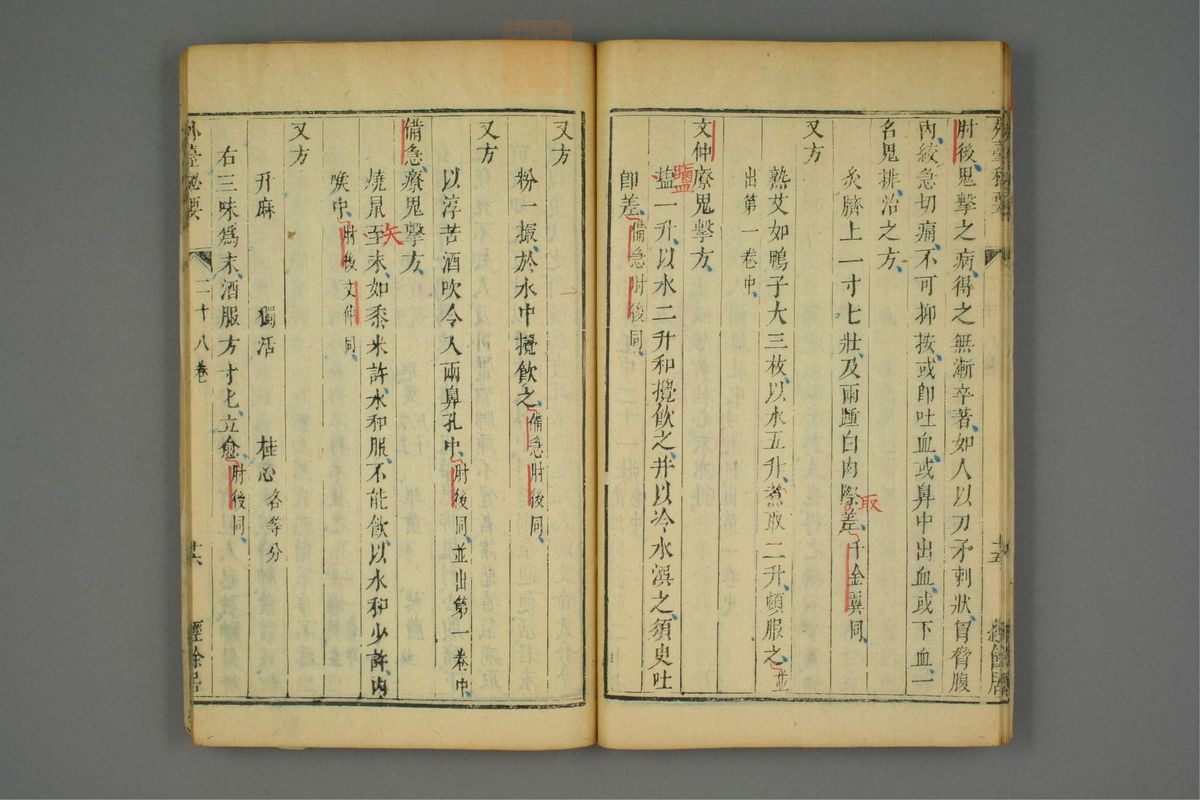 外臺秘要
十五
經餘居
肘後鬼擊之病得之無漸卒著如人以刀矛刺狀胷脅腹
內絞急切痛不可抑按或卽吐血或鼻中出血或下血一
名鬼排治之方
灸臍上一寸七壯及兩踵白肉際差千金翼同
取
又方
熟艾如鴨子大三枚以水五升煮取二升頓服之並
出第一卷中
文仲療鬼擊方
鹽
塩一升以水二升和攪飲之并以冷水潠之須臾吐
卽差備急肘後同
又方
粉一撮於水中攪飲之備急肘後同
又方
以淳苦酒吹令入兩鼻孔中肘後同並出第一卷中
備急療鬼擊方
矢
燒鼠至末如黍米許水和服不能飲以水和少許內
喉中肘後文仲同
又方
升麻 獨活 桂心各等分
右三味爲末酒服方寸匕立愈肘後同
外臺秘要
二十八卷
廿六
經餘居